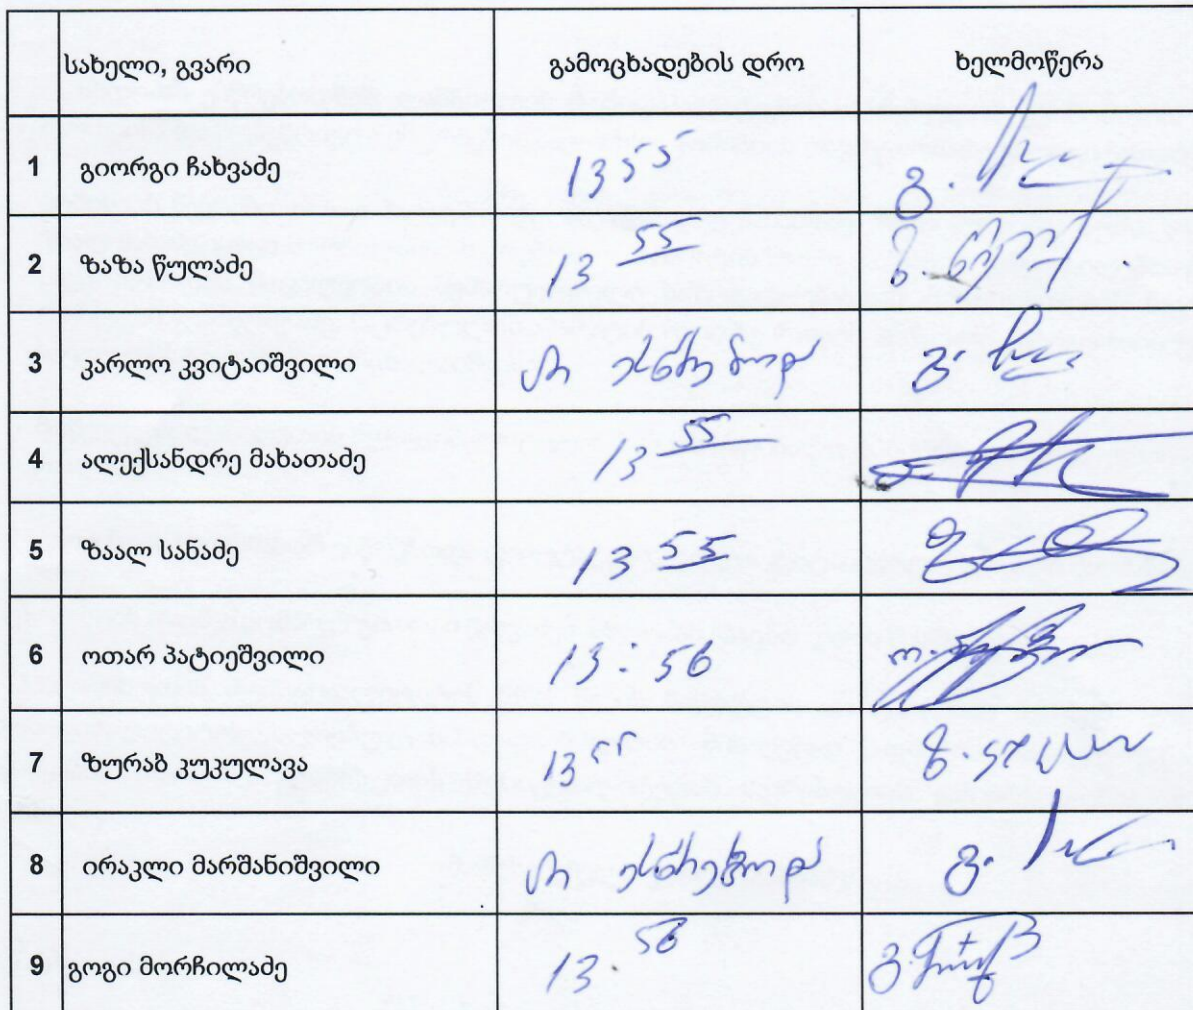 სახელი, გვარი გამოცხადების დრო ხელმოწერა
1 გიორგი ჩახვაძე 13 55 გ.
2 ზაზა წულაძე 13 55 ზ.
3 კარლო კვიტაიშვილი არ ესწრებოდა გ.
4 ალექსანდრე მახათაძე 13 55
5 ზაალ სანაძე 13 55
6 ოთარ პატიეშვილი 13:56 ო.
7 ზურაბ კუკულავა 13 55 ზ.
8 ირაკლი მარშანიშვილი არ ესწრებოდა გ.
9 გოგი მორჩილაძე 13 56 გ.